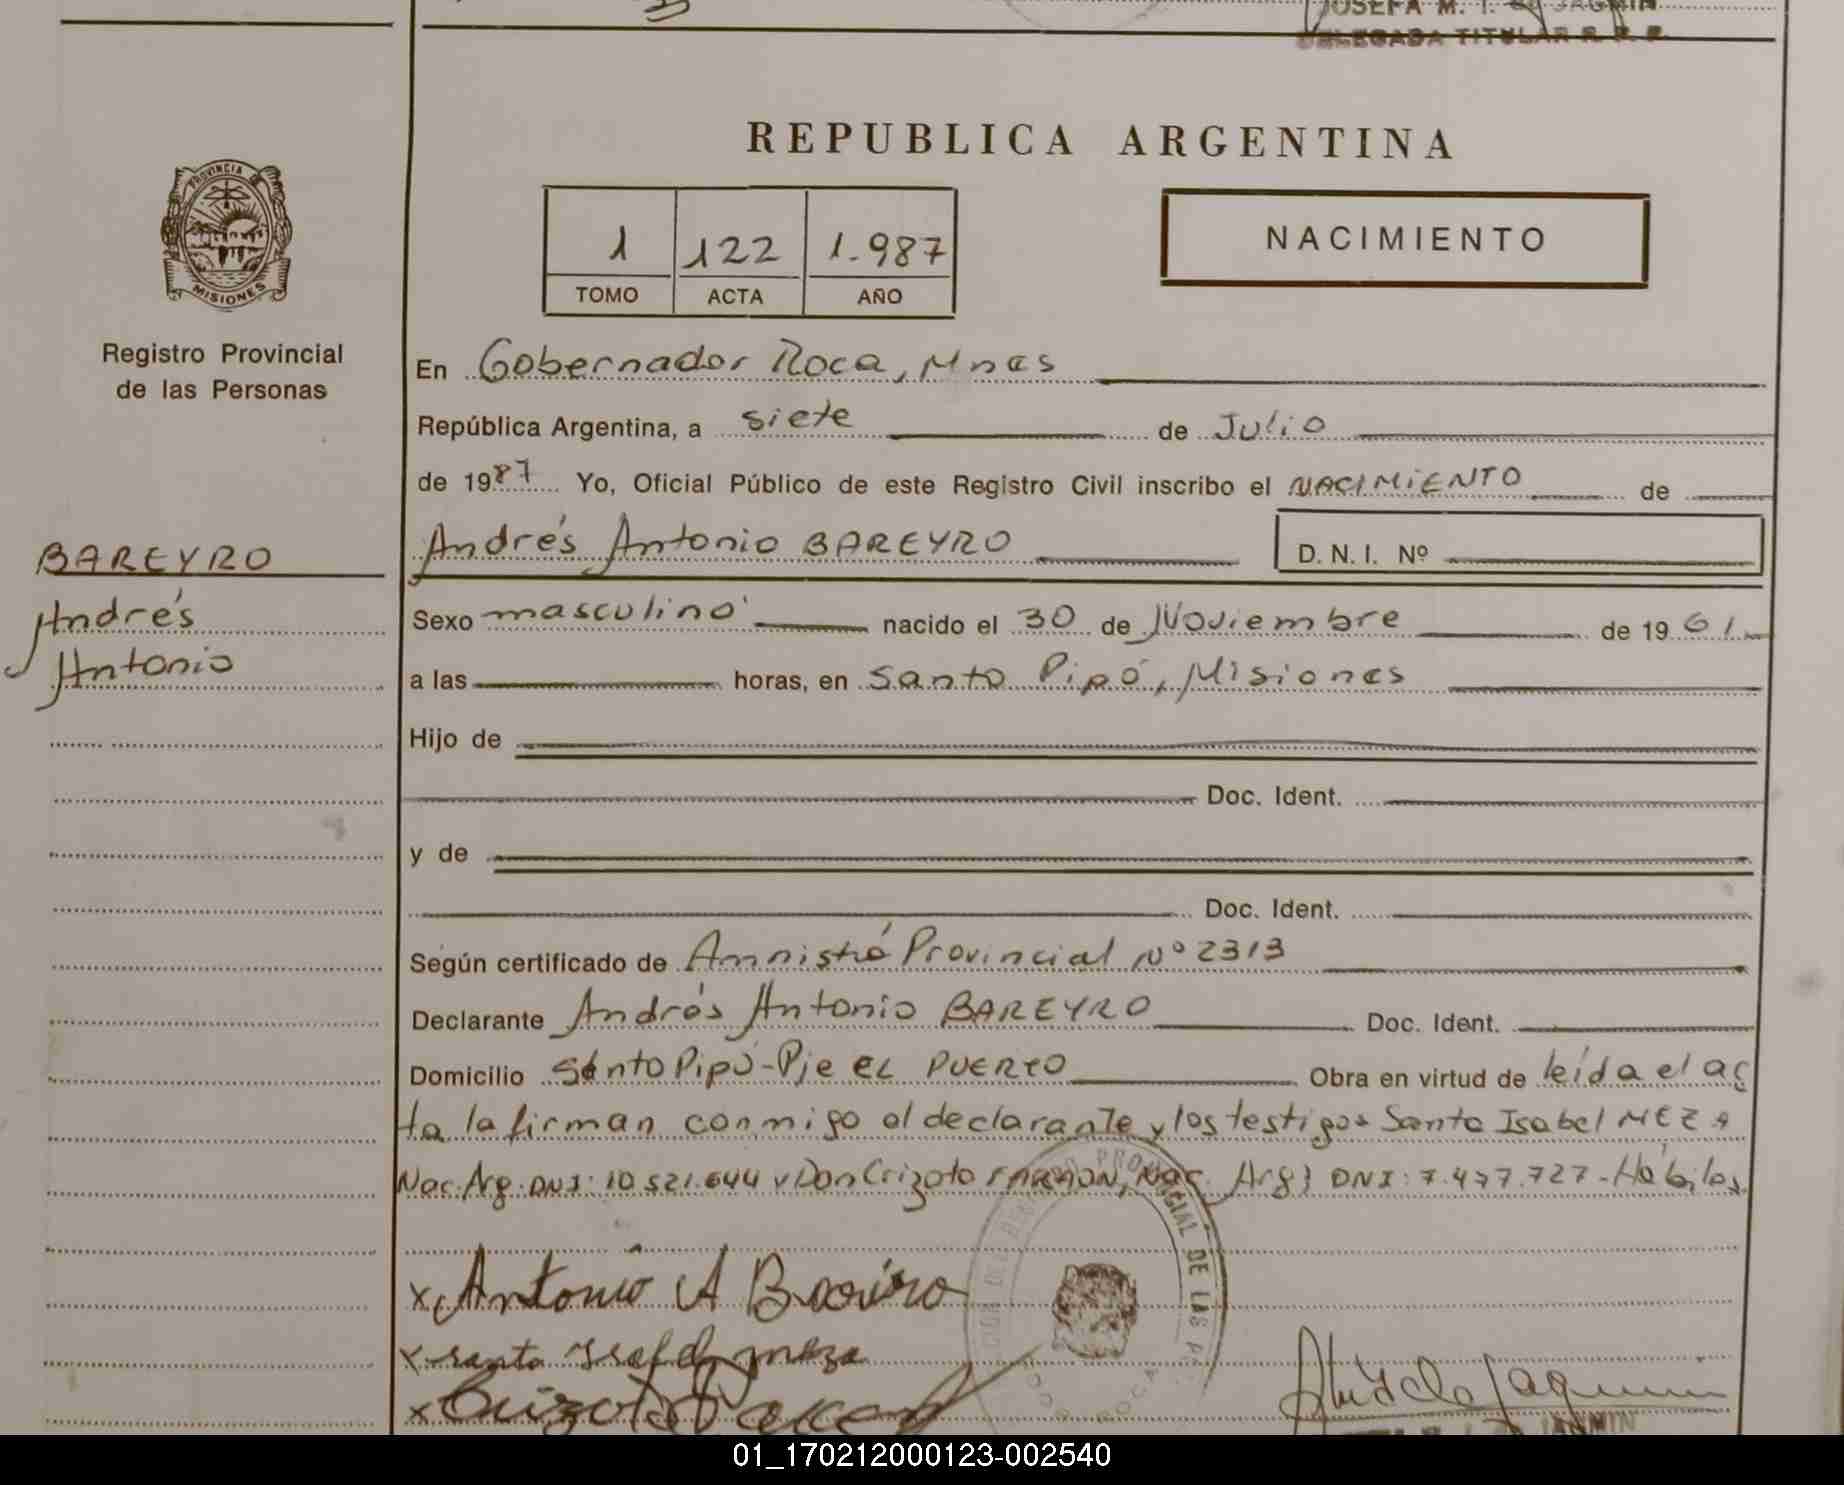 JOSEFA M. I. DE JAGMIN
DELEGADA TITULAR R. P. P.
REPUBLICA ARGENTINA
PROVINCIA DE
MISIONES
1 122 1.987
TOMO ACTA AÑO
NACIMIENTO
Registro Provincial
de las Personas
En Gobernador Roca, Mnes
República Argentina, a siete de Julio
de 1987 Yo, Oficial Público de este Registro Civil inscribo el NACIMIENTO de
Andrés Antonio BAREYRO D. N. I. Nº
BAREYRO
Andrés
Antonio
Sexo masculino nacido el 30 de Noviembre de 1961
a las horas, en Santo Pipó, Misiones
Hijo de
Doc. Ident.
y de
Doc. Ident.
Según certificado de Amnistía Provincial Nº 2313
Declarante Andrés Antonio BAREYRO Doc. Ident.
Domicilio Santo Pipó-Pje EL PUERTO Obra en virtud de leída el ac
ta la firman conmigo el declarante y los testigos Santa Isabel MEZA
Nac. Arg. DNI: 10.521.644 y Don Crizoto Nac. Arg; DNI: 7.477.727-Hábiles
PROVINCIAL DE LAS
ROCA
x Antonio A Bareiro
x santa Isabel meza
x
01_170212000123-002540